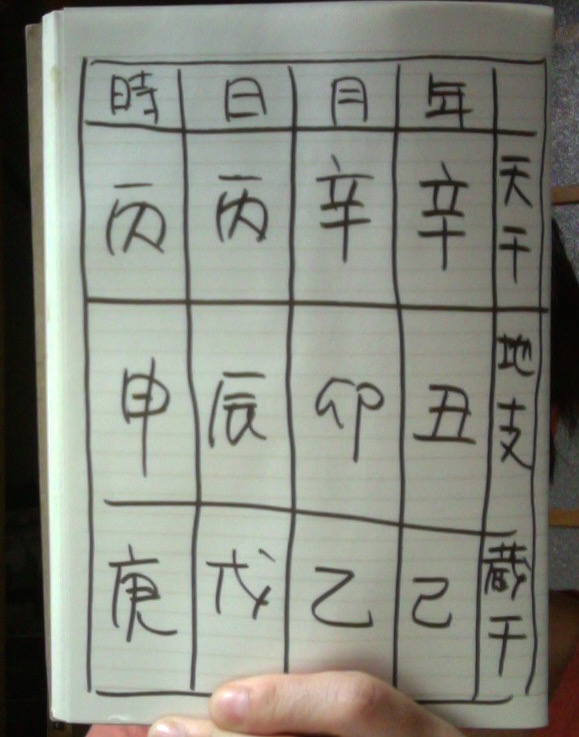 時 日 月 年
丙 丙 辛 辛 天干
申 辰 卯 丑 地支
庚 戊 乙 己 蔵干